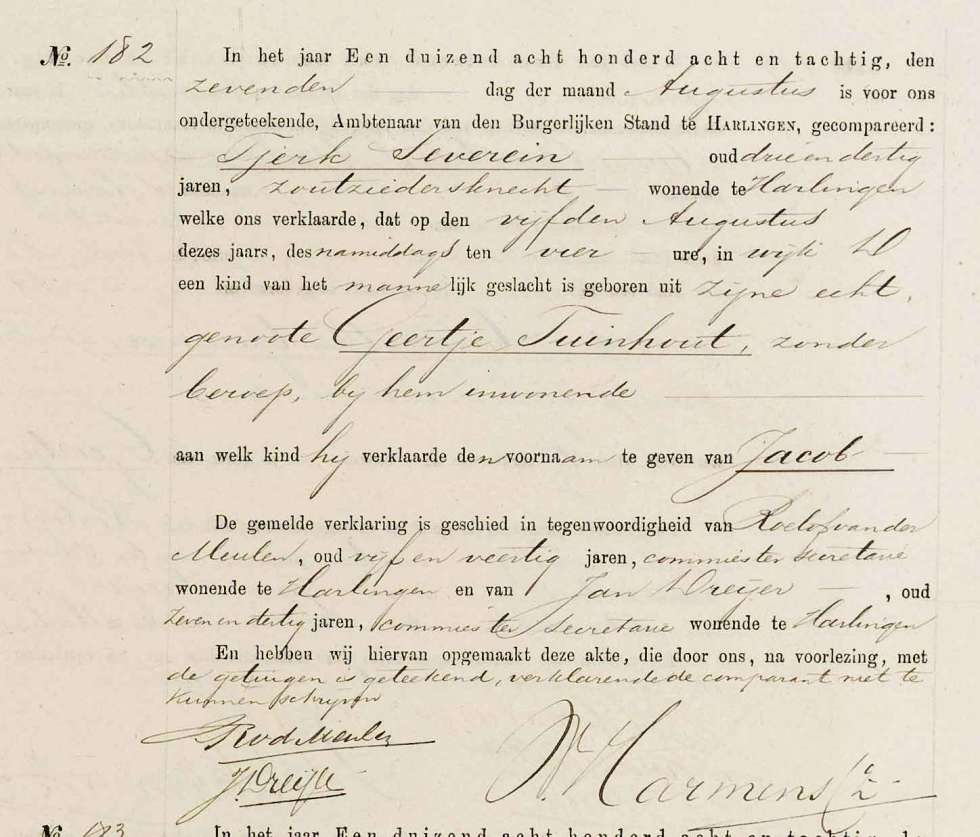 No. 182
In het jaar Een duizend acht honderd acht en tachtig, den
zevenden dag der maand Augustus is voor ons
ondergeteekende, Ambtenaar van den Burgerlijken Stand te HARLINGEN, gecompareerd:
Tjerk Severein oud drie en dertig
jaren, zoutziedersknecht wonende te Harlingen
welke ons verklaarde, dat op den vijfden Augustus
dezes jaars, des namiddags ten vier ure, in wijk D
een kind van het mannelijk geslacht is geboren uit zijne echt,
genoote Geertje Tuinhout, zonder
beroep, bij hem inwonende
aan welk kind hij verklaarde den voornaam te geven van Jacob
De gemelde verklaring is geschied in tegenwoordigheid van Roelof van der
Meulen, oud vijf en veertig jaren, commies ter secretarie
wonende te Harlingen en van Jan Dreijer, oud
zeven en dertig jaren, commies ter secretarie wonende te Harlingen
En hebben wij hiervan opgemaakt deze akte, die door ons, na voorlezing, met
de getuigen is geteekend, verklarende de comparant niet te
kunnen schrijven
RvdMeulen
J. Dreijer
Harmens
No. 183 In het jaar Een duizend acht honderd acht en tachtig, de